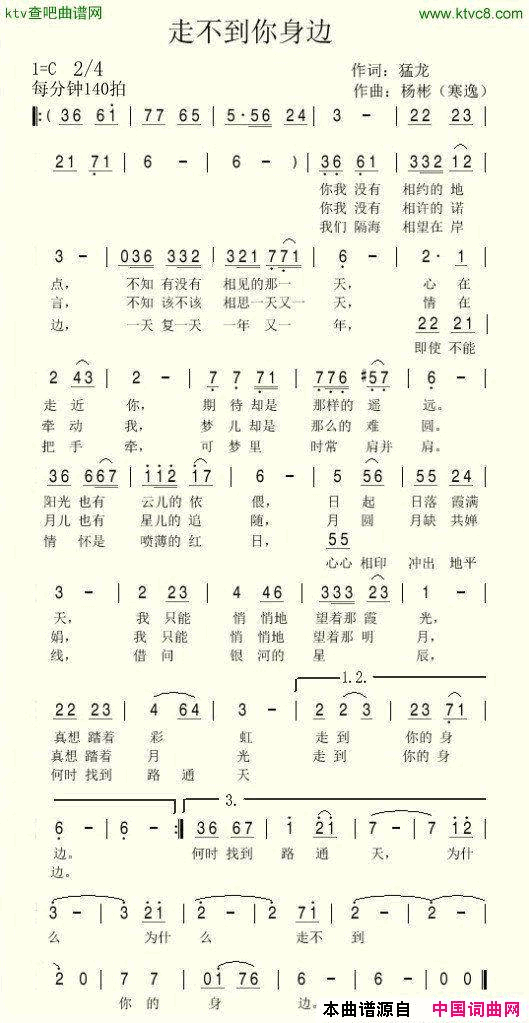 ktv查吧曲谱网
www.ktvc8.com
走不到你身边
1=C 2/4
作词：猛龙
每分钟140拍
作曲：杨彬（寒逸）
‖:( 36 61 | 76 65 | 5·56 24 | 3 - | 22 23 |
21 71 | 6 - | 6 - ) | 36 61 | 332 12 |
你我 没有 相约的 地
你我 没有 相许的 诺
我们 隔海 相望在 岸
3 - | 036 332 | 321 771 | 6 - | 2· 1 |
点， 不知 有没有 相见的那一 天， 心 在
言， 不知 该不该 相思一天又一 天， 情 在
边， 一天 复一天 一年 又一 年， 22 21
即使 不能
2 43 | 2 - | 7 7 71 | 776 #57 | 6 - |
走 近 你， 期 待 却是 那样的 遥 远。
牵 动 我， 梦 儿 却是 那么的 难 圆。
把 手 牵， 可 梦里 时常 肩并 肩。
36 667 | 112 17 | 6 - | 5 56 | 55 24 |
阳光 也有 云儿的 依 偎， 日 起 日落 霞满
月儿 也有 星儿的 追 随， 月 圆 月缺 共婵
情 怀是 喷薄的 红 日， 55
心心 相印 冲出 地平
3 - | 2 23 | 4 46 | 333 23 | 1 - |
天， 我 只能 悄 悄地 望着那 霞 光，
娟， 我 只能 悄 悄地 望着那 明 月，
线， 借 问 银 河的 星 辰，
1.2.
22 23 | 4 64 | 3 - | 2 2 3 | 23 71 |
真想 踏着 彩 虹 走 到 你的 身
真想 踏着 月 光 走 到 你的 身
何时 找到 路 通 天
3.
6 - | 6 - :‖ 36 67 | 1 21 | 7 - | 7 12 |
边。 何时 找到 路 通 天， 为什
边。
3 - | 3 21 | 2 - | 2 71 | 2 - | 2 - |
么 为什 么 走不 到
2 0 | 7 7 | 01 76 | 6 - | 6 0 ‖
你 的 身 边。
本曲谱源自 中国词曲网